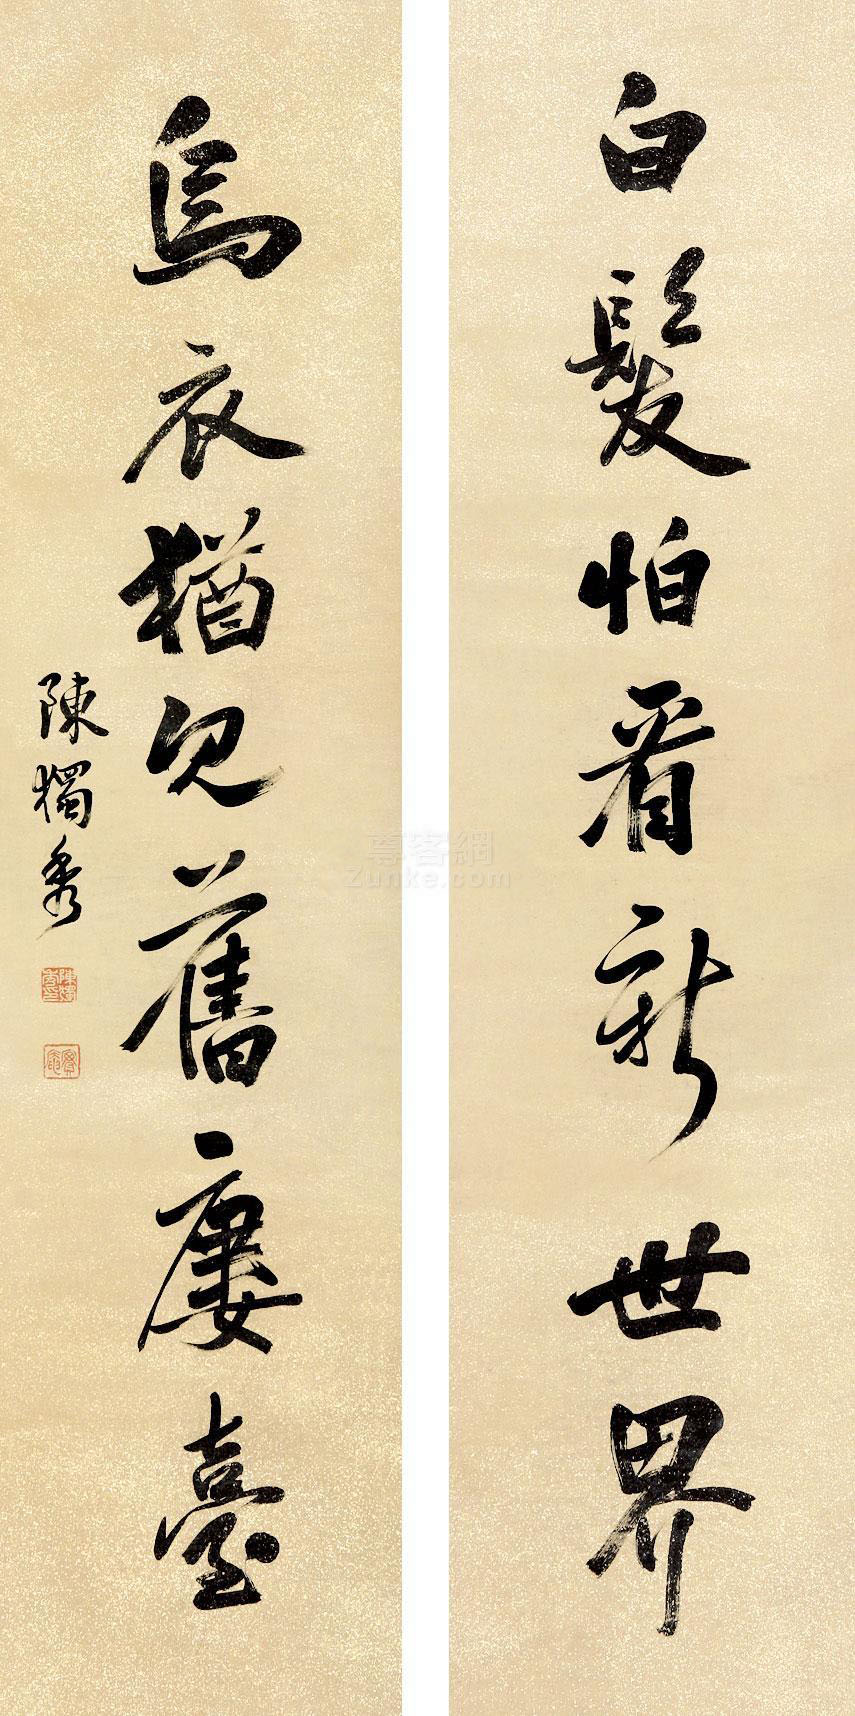 白髮怕看新世界
烏衣猶見舊廔臺
陳獨秀
陳獨秀印
尊客網
Zunke.com